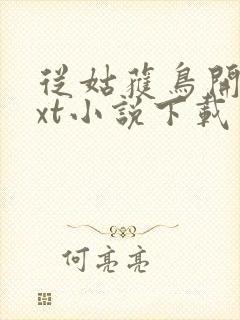 從姑獲鳥開
xt小說下載
何亮亮